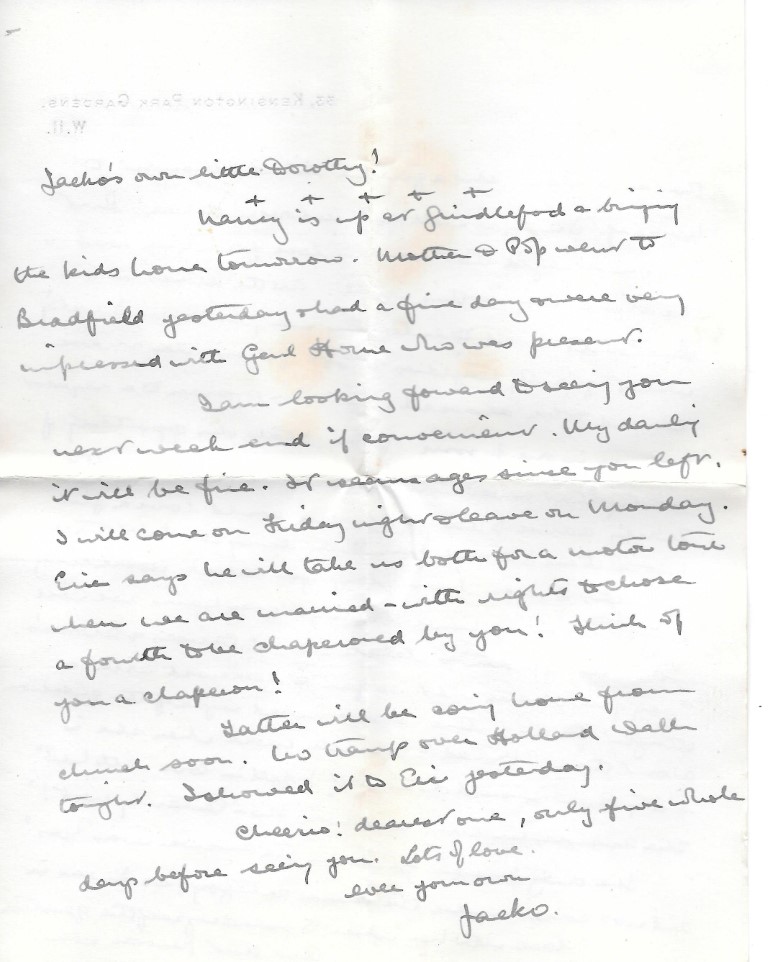 33, KENSINGTON PARK GARDENS.
W.11.
Jacko's own little Dorothy!
+ + + + +
Nancy is up at Grindleford & bringing
the kids home tomorrow. Mother & Pop went to
Bradfield yesterday & had a fine day & were very
impressed with Genl Horne who was present.
I am looking foward to seeing you
next week end if convenient. My darling
it will be fine. It seems ages since you left.
I will come on Friday night & leave on Monday.
Eric says he will take us both for a motor tour
when we are married - with rights to chose
a fourth to be chaperoned by you! Think of
you a chaperon!
Father will be coming home from
church soon. No tramp over Holland Walk
tonight. I showed it to Eric yesterday.
Cheerio! dearest one, only five whole
days before seeing you. Lots of love.
ever your own
Jacko.